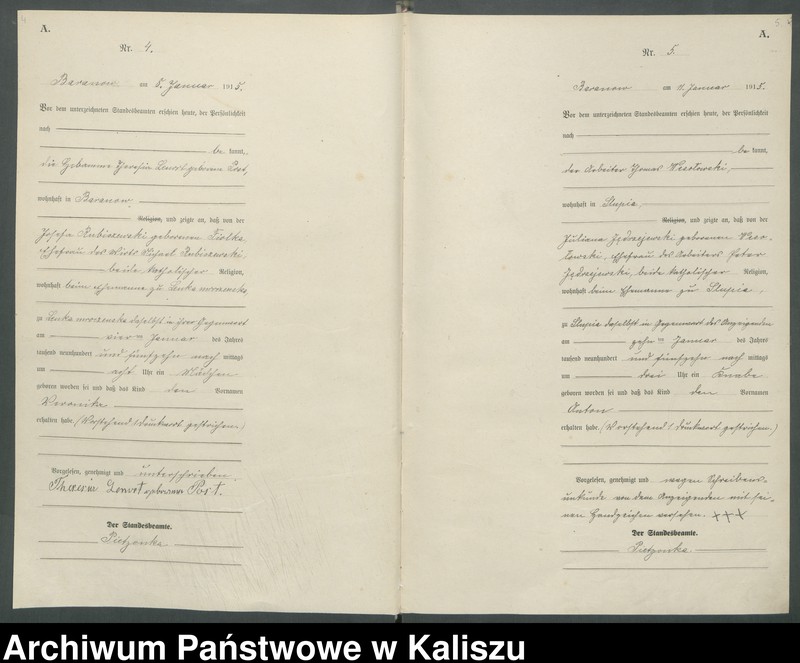 A.
Nr. 4.
Baranow am 5. Januar 1915.
Vor dem unterzeichneten Standesbeamten erschien heute, der Persönlichkeit
nach
be kannt,
die Hebamme Theresia Lenort geborene Post,
wohnhaft in Baranow
Religion, und zeigte an, daß von der
Josefa Rubiszewski geborenen Fiolka,
Ehefrau des Wirts Michael Rubiszewski
beide katholischer Religion,
wohnhaft beim Ehemanne zu Lenka mroczenska,
zu Lenka mroczenska daselbst in ihrer Gegenwart
am vier ten Januar des Jahres
tausend neunhundert und fünfzehn nach mittags
um acht Uhr ein Mädchen
geboren worden sei und daß das Kind den Vornamen
Veronika
erhalten habe. (Vorstehend 1 Druckwort gestrichen)
Vorgelesen, genehmigt und unterschrieben
Theresia Lenort geborene Post.
Der Standesbeamte.
Pietzonka
5
A.
Nr. 5.
Baranow am Januar 1915.
Vor dem unterzeichneten Standesbeamten erschien heute, der Persönlichkeit
nach
be kannt,
der Arbeiter Thomas Wesolowski,
wohnhaft in Slupia,
Religion, und zeigte an, daß von der
Juliana Jędrzejewski geborenen Weso-
lowski, Ehefrau des Arbeiters Peter
Jędrzejewski, beide katholischer Religion,
wohnhaft beim Ehemanne zu Slupia,
zu Slupia daselbst in Gegenwart des Anzeigenden
am zehn ten Januar des Jahres
tausend neunhundert und fünfzehn nach mittags
um drei Uhr ein Knabe
geboren worden sei und daß das Kind den Vornamen
Anton
erhalten habe. (Vorstehend 1 Druckwort gestrichen.)
Vorgelesen, genehmigt und wegen Schreibens-
unkunde von dem Anzeigenden mit sei-
nen Handzeichen versehen. +++
Der Standesbeamte.
Pietzonka
Archiwum Państwowe w Kaliszu